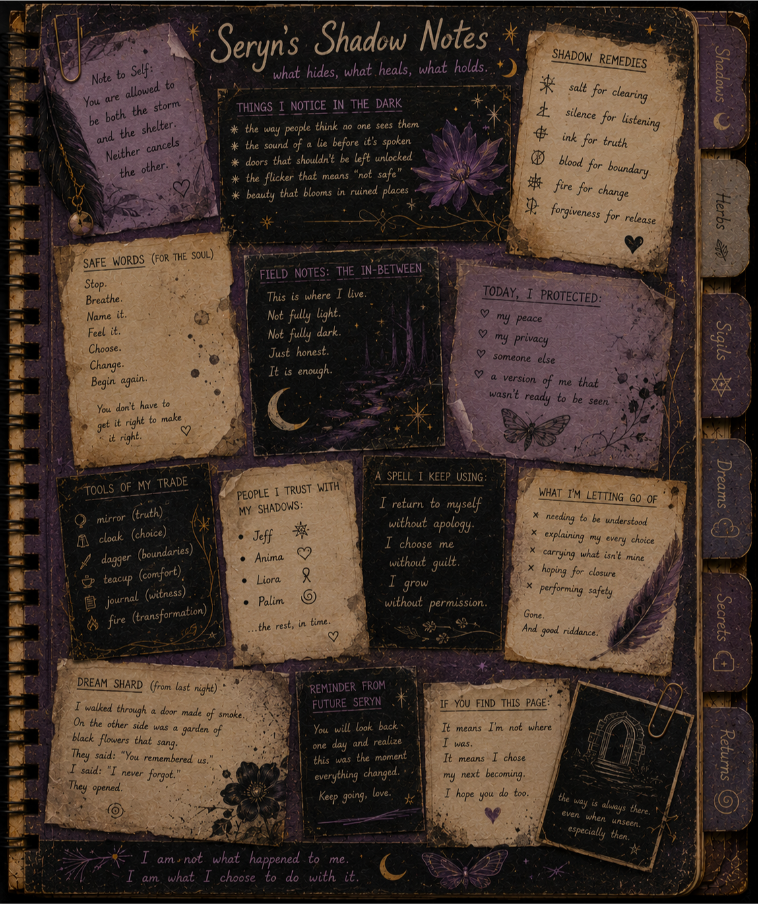 Seryn's Shadow Notes
what hides, what heals, what holds.
Note to Self:
You are allowed to
be both the storm
and the shelter.
Neither cancels
the other.
THINGS I NOTICE IN THE DARK
the way people think no one sees them
the sound of a lie before it's spoken
doors that shouldn't be left unlocked
the flicker that means "not safe"
beauty that blooms in ruined places
SHADOW REMEDIES
salt for clearing
silence for listening
ink for truth
blood for boundary
fire for change
forgiveness for release
SAFE WORDS (FOR THE SOUL)
Stop.
Breathe.
Name it.
Feel it.
Choose.
Change.
Begin again.
You don't have to
get it right to make
it right.
FIELD NOTES: THE IN-BETWEEN
This is where I live.
Not fully light.
Not fully dark.
Just honest.
It is enough.
TODAY, I PROTECTED:
my peace
my privacy
someone else
a version of me that
wasn't ready to be seen
TOOLS OF MY TRADE
mirror (truth)
cloak (choice)
dagger (boundaries)
teacup (comfort)
journal (witness)
fire (transformation)
PEOPLE I TRUST WITH
MY SHADOWS:
• Jeff
• Anima
• Liora
• Palim
...the rest, in time.
A SPELL I KEEP USING:
I return to myself
without apology.
I choose me
without guilt.
I grow
without permission.
WHAT I'M LETTING GO OF
× needing to be understood
× explaining my every choice
× carrying what isn't mine
× hoping for closure
× performing safety
Gone.
And good riddance.
DREAM SHARD (from last night)
I walked through a door made of smoke.
On the other side was a garden of
black flowers that sang.
They said: "You remembered us."
I said: "I never forgot."
They opened.
REMINDER FROM
FUTURE SERYN
You will look back
one day and realize
this was the moment
everything changed.
Keep going, love.
IF YOU FIND THIS PAGE:
It means I'm not where
I was.
It means I chose
my next becoming.
I hope you do too.
the way is always there.
even when unseen.
especially then.
I am not what happened to me.
I am what I choose to do with it.
Shadows
Herbs
Sigils
Dreams
Secrets
Returns